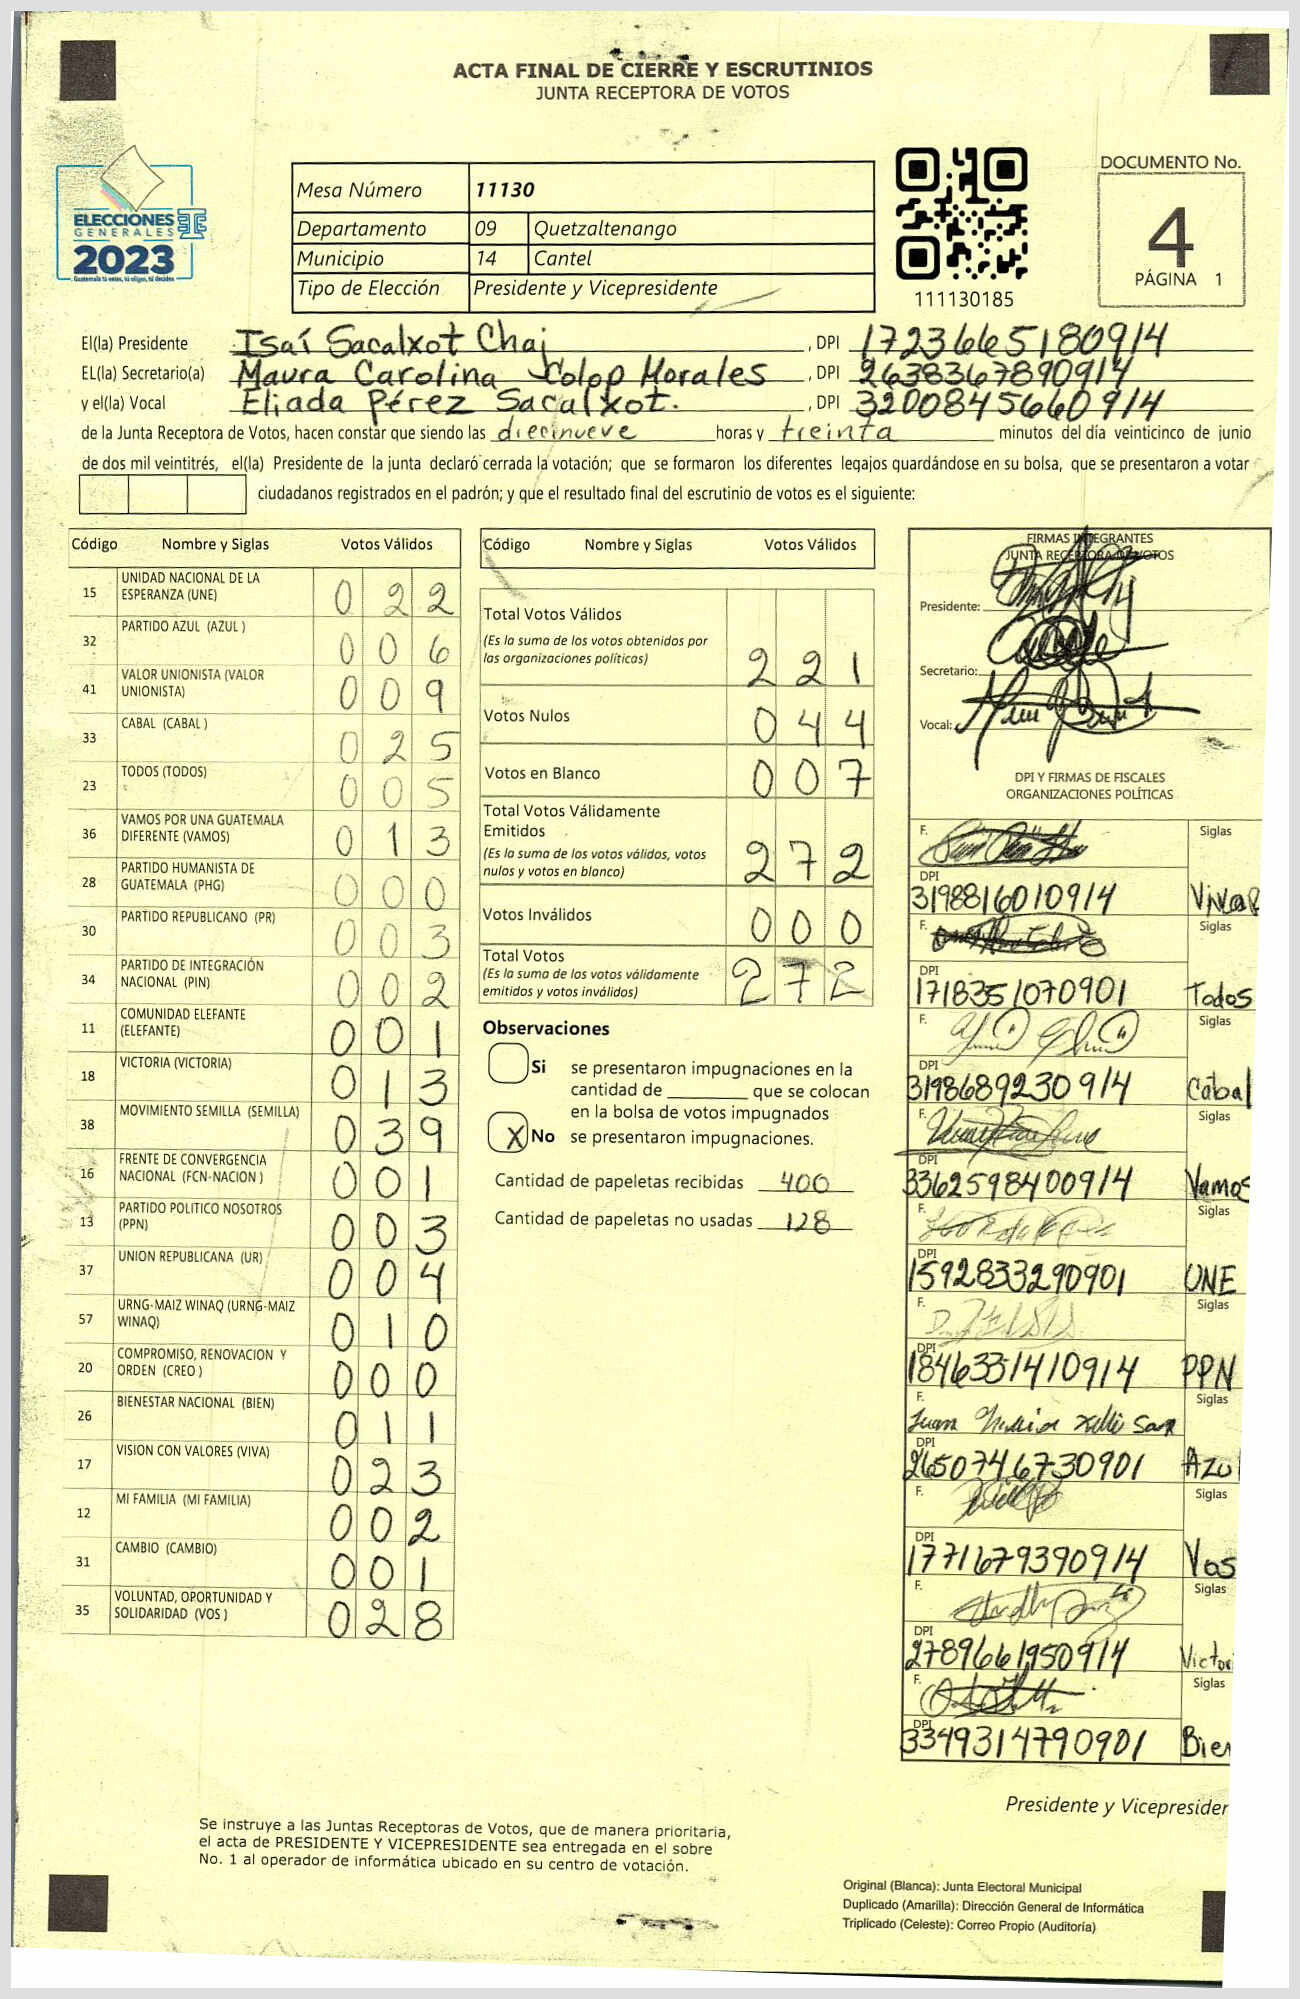 ACTA FINAL DE CIERRE Y ESCRUTINIOS
JUNTA RECEPTORA DE VOTOS
ELECCIONES
GENERALES
2023
Guatemala tú votas, tú eliges, tú decides
Mesa Número 11130
Departamento 09 Quetzaltenango
Municipio 14 Cantel
Tipo de Elección Presidente y Vicepresidente
111130185
DOCUMENTO No.
4
PÁGINA 1
El(la) Presidente Isaí Sacalxot Chaj , DPI 1723666518 0914
EL(la) Secretario(a) Maura Carolina Colop Morales , DPI 2638367890914
y el(la) Vocal Eliada Pérez Sacalxot. , DPI 3200845660914
de la Junta Receptora de Votos, hacen constar que siendo las diecinueve horas y treinta minutos del día veinticinco de junio
de dos mil veintitrés, el(la) Presidente de la junta declaró cerrada la votación; que se formaron los diferentes legajos quardándose en su bolsa, que se presentaron a votar
ciudadanos registrados en el padrón; y que el resultado final del escrutinio de votos es el siguiente:
Código Nombre y Siglas Votos Válidos
15 UNIDAD NACIONAL DE LA ESPERANZA (UNE) 0 2 2
32 PARTIDO AZUL (AZUL ) 0 0 6
41 VALOR UNIONISTA (VALOR UNIONISTA) 0 0 9
33 CABAL (CABAL ) 0 2 5
23 TODOS (TODOS) 0 0 5
36 VAMOS POR UNA GUATEMALA DIFERENTE (VAMOS) 0 1 3
28 PARTIDO HUMANISTA DE GUATEMALA (PHG) 0 0 0
30 PARTIDO REPUBLICANO (PR) 0 0 3
34 PARTIDO DE INTEGRACIÓN NACIONAL (PIN) 0 0 2
11 COMUNIDAD ELEFANTE (ELEFANTE) 0 0 1
18 VICTORIA (VICTORIA) 0 1 3
38 MOVIMIENTO SEMILLA (SEMILLA) 0 3 9
16 FRENTE DE CONVERGENCIA NACIONAL (FCN-NACION ) 0 0 1
13 PARTIDO POLITICO NOSOTROS (PPN) 0 0 3
37 UNION REPUBLICANA (UR) 0 0 4
57 URNG-MAIZ WINAQ (URNG-MAIZ WINAQ) 0 1 0
20 COMPROMISO, RENOVACION Y ORDEN (CREO ) 0 0 0
26 BIENESTAR NACIONAL (BIEN) 0 1 1
17 VISION CON VALORES (VIVA) 0 2 3
12 MI FAMILIA (MI FAMILIA) 0 0 2
31 CAMBIO (CAMBIO) 0 0 1
35 VOLUNTAD, OPORTUNIDAD Y SOLIDARIDAD (VOS ) 0 2 8
Código Nombre y Siglas Votos Válidos
Total Votos Válidos
(Es la suma de los votos obtenidos por
las organizaciones políticas) 2 2 1
Votos Nulos 0 4 4
Votos en Blanco 0 0 7
Total Votos Válidamente
Emitidos
(Es la suma de los votos válidos, votos
nulos y votos en blanco) 2 7 2
Votos Inválidos 0 0 0
Total Votos
(Es la suma de los votos válidamente
emitidos y votos inválidos) 2 7 2
Observaciones
Si se presentaron impugnaciones en la
cantidad de ________ que se colocan
en la bolsa de votos impugnados
X No se presentaron impugnaciones.
Cantidad de papeletas recibidas 400
Cantidad de papeletas no usadas 128
FIRMAS INTEGRANTES
JUNTA RECEPTORA DE VOTOS
Presidente:
Secretario:
Vocal:
DPI Y FIRMAS DE FISCALES
ORGANIZACIONES POLÍTICAS
F. Siglas
DPI
3198816010914
F. Siglas
DPI
1718351070901 Todos
F. Siglas
DPI
3198689230914 Cabal
F. Siglas
DPI
3362598400914 Vamos
F. Siglas
DPI
1592833290901 UNE
F. Siglas
DPI
1846331410914 PPN
F. Juan Siglas
DPI
2650746730901 Azul
F. Siglas
DPI
1771679390914 Vos
F. Siglas
DPI
2789661950914 Victori
F. Siglas
DPI
3349314790901 Bien
Presidente y Vicepresiden
Se instruye a las Juntas Receptoras de Votos, que de manera prioritaria,
el acta de PRESIDENTE Y VICEPRESIDENTE sea entregada en el sobre
No. 1 al operador de informática ubicado en su centro de votación.
Original (Blanca): Junta Electoral Municipal
Duplicado (Amarilla): Dirección General de Informática
Triplicado (Celeste): Correo Propio (Auditoría)